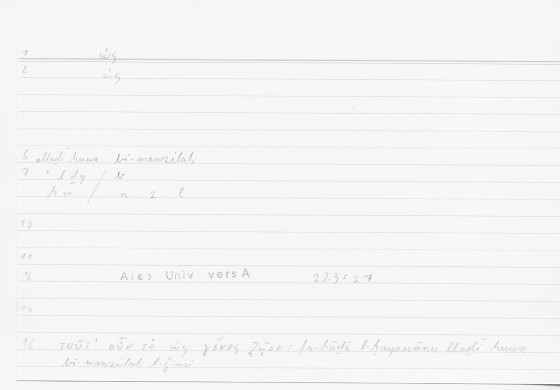 1 ὡς
2 ὡς
6 allaḏī huwa bi-manzilat
7 ʾ l ḏ y / b
h w / n z l
10
11
12 Alex Univ versA 223
14
16 ταῦτ' οὖν τὸ ὡς γένος ζῷον = fa-hāḏā l-ḥayawānu llaḏī huwa
bi-manzilati l-ǧinsi